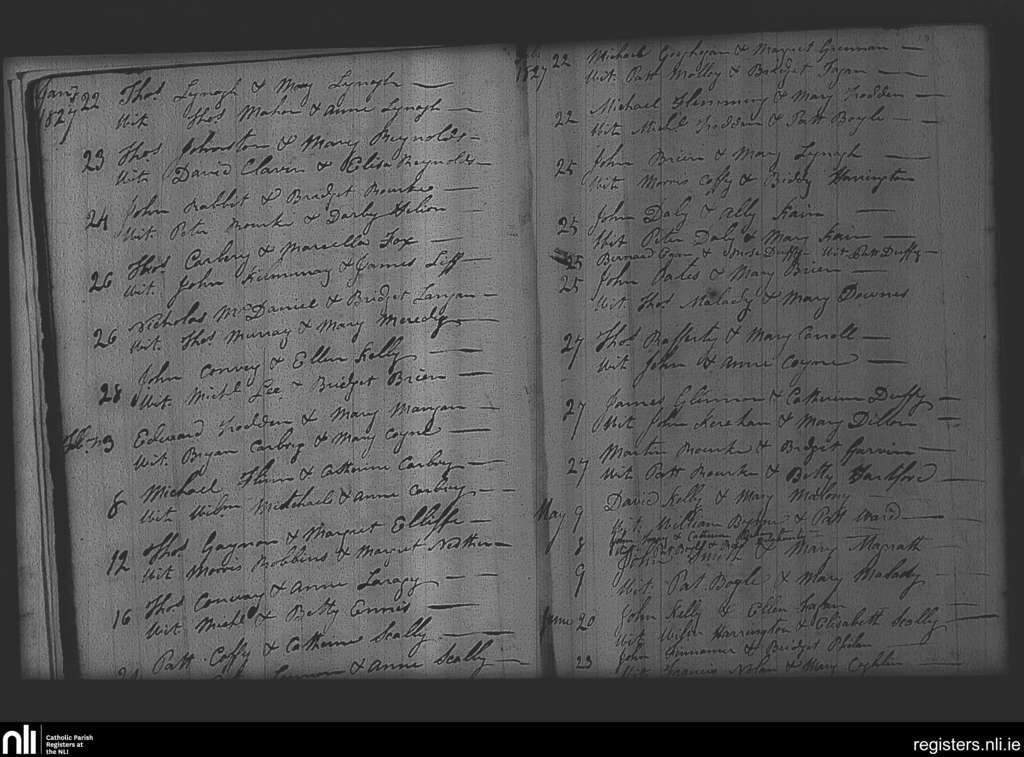 Jany 1827 22 Thos Lynogh & Mary Lynogh
Wit Thos Mahon & Anne Lynogh
23 Thos Johnston & Mary Reynolds
Wit. David Claven & Elisa Reynolds
24 John Rabbit & Bridget Bourke
Wit. Peter Rourke & Darby
26 Thos Carbery & Marsella Fox
Wit. John & James Liff
26 Nicholas McDaniel & Bridget Langan
Wit. Thos Murray & Mary Meredig
28 John Convey & Ellen Kelly
Wit. Michl Lee & Bridget Brien
Feb. 3 Edward Frodden & Mary Mangan
Wit. Bryan Carbery & Mary Coyne
8 Michael Flinn & Catherine Carbery
Wit Wilm Mitchael & Anne Carbery
12 Thos Gaynor & Margret Elliffe
Wit Morris Robbins & Margret
16 Thos Conway & Anne Laragy
Wit Michl & Betty Ennis
21 Patt Coffy & Catherine Scally
& Anne Scally
1827 22 Michael Geoghegan & Margret Grennan
Wit. Patt Molloy & Bridget Fagan
22 Michael Flemming & Mary Frodden
Wit Michl Frodden & Patt Boyle
25 John Brien & Mary Lynogh
Wit Morris Coffy & Biddy Harrington
25 John Daly & Ally Kain
Wit Peter Daly & Mary Kain
25 Bernard Egan & Duffy Wit. Patt Duffy
25 John Pales & Mary Brien
Wit. Thos Malady & Mary Downes
27 Thos Rafferty & Mary Carroll
Wit John & Anne Coyne
27 James Glennon & Catherine Duffy
Wit John Kerehan & Mary Dillon
27 Martin Rourke & Bridget Garvin
Wit Patt Rourke & Betty Hackford
May 9 David Kelly & Mary Malony
Wit. William Byrne & Patt Ward
8 John & Catherine
9 John & Mary Magrath
Wit. Pat Boyle & Mary Malady
June 20 John Kelly & Ellen Fagan
Wit Wilm Harrington & Elisabeth Scally
23 John & Bridget Philan
Wit Francis Nolan & Mary Coghlin
nli
Catholic Parish
Registers at
the NLI
registers.nli.ie